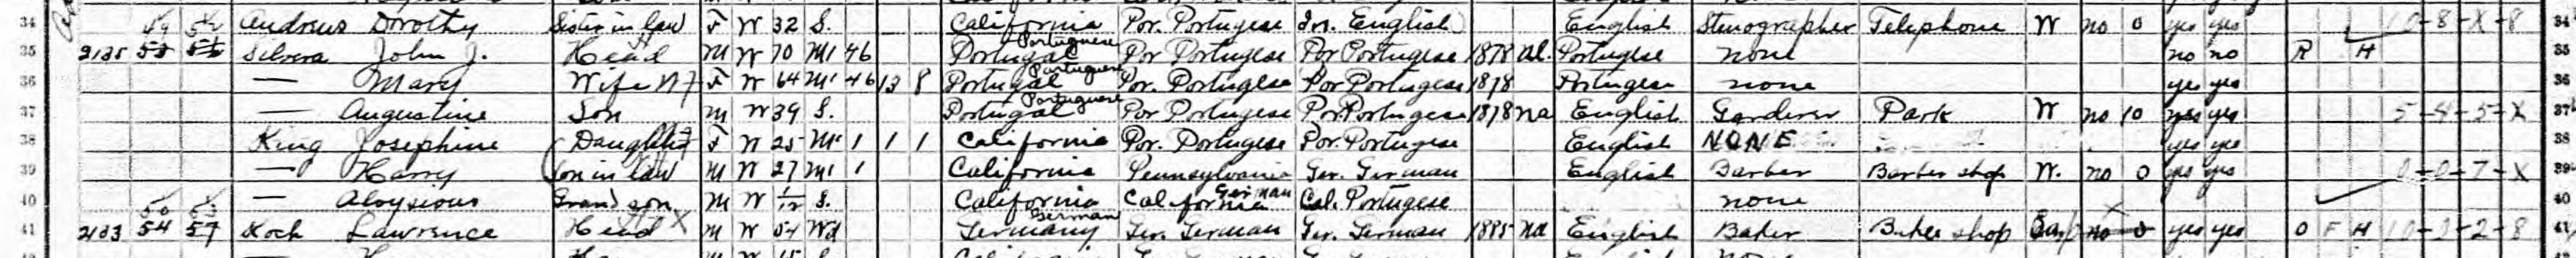 34 49 52 Andrews Dorothy Sister in law F W 32 S. California Por. Portugese Ir. English English Stenographer Telephone W no 0 yes yes 10-8-X-8 34
35 2135 53 56 Silvera John J. Head M W 70 M1 46 Portugal Portuguese Por Portugese Por Portugese 1878 al. Portugese none no no R H 35
36 — Mary Wife F W 64 M1 46 13 8 Portugal Portuguese Por. Portugese Por Portugese 1878 Portugese none yes yes 36
37 — Augustine Son M W 39 S. Portugal Portuguese Por Portugese Por Portugese 1878 na English Gardener Park W no 10 yes yes 5-4-5-X 37
38 King Josephine Daughter F W 25 M1 1 1 1 California Por. Portugese Por. Portugese English NONE yes yes 38
39 — Harry Son in law M W 27 M1 1 California Pennsylvania Ger. German English Barber Barber shop W. no 0 yes yes 0-0-7-X 39
40 50 53 — Aloysious Grand son M W 1/12 S. California California German Cal. Portugese none 40
41 2133 54 57 Koch Lawrence Head X M W 54 Wd Germany German Ger. German Ger. German 1885 na English Baker Baker shop Emp no 0 yes yes O F H 41
California Ger. German Ger. German none